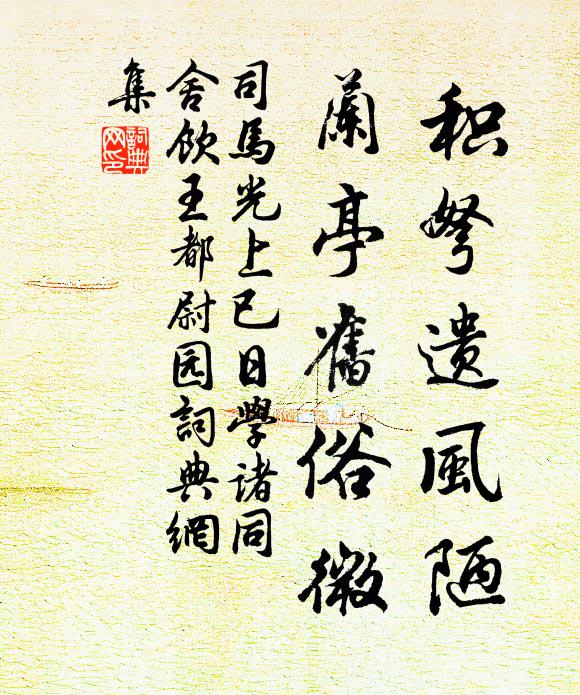 积弩遗風陋
蘭亭舊俗微
司馬光上巳日學诸同
舍飲王都尉园詞典網
集
詞典
网印